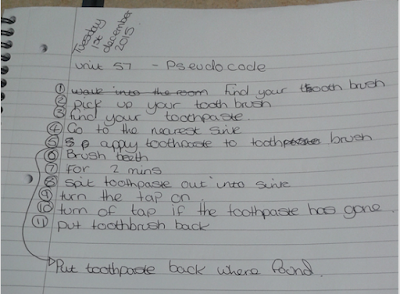 Tuesday
1st
december
2015
unit 57 - Pseudocode
① walk into the room find your tooth brush
② pick up your tooth brush
③ find your toothpaste.
④ Go to the nearest sink
⑤ apply toothpaste to tooth brush
⑥ Brush teeth
⑦ for 2 mins
⑧ spit toothpaste out into sink
⑨ turn the tap on
⑩ turn of tap if the toothpaste has gone.
⑪ put toothbrush back
Put toothpaste back where found.